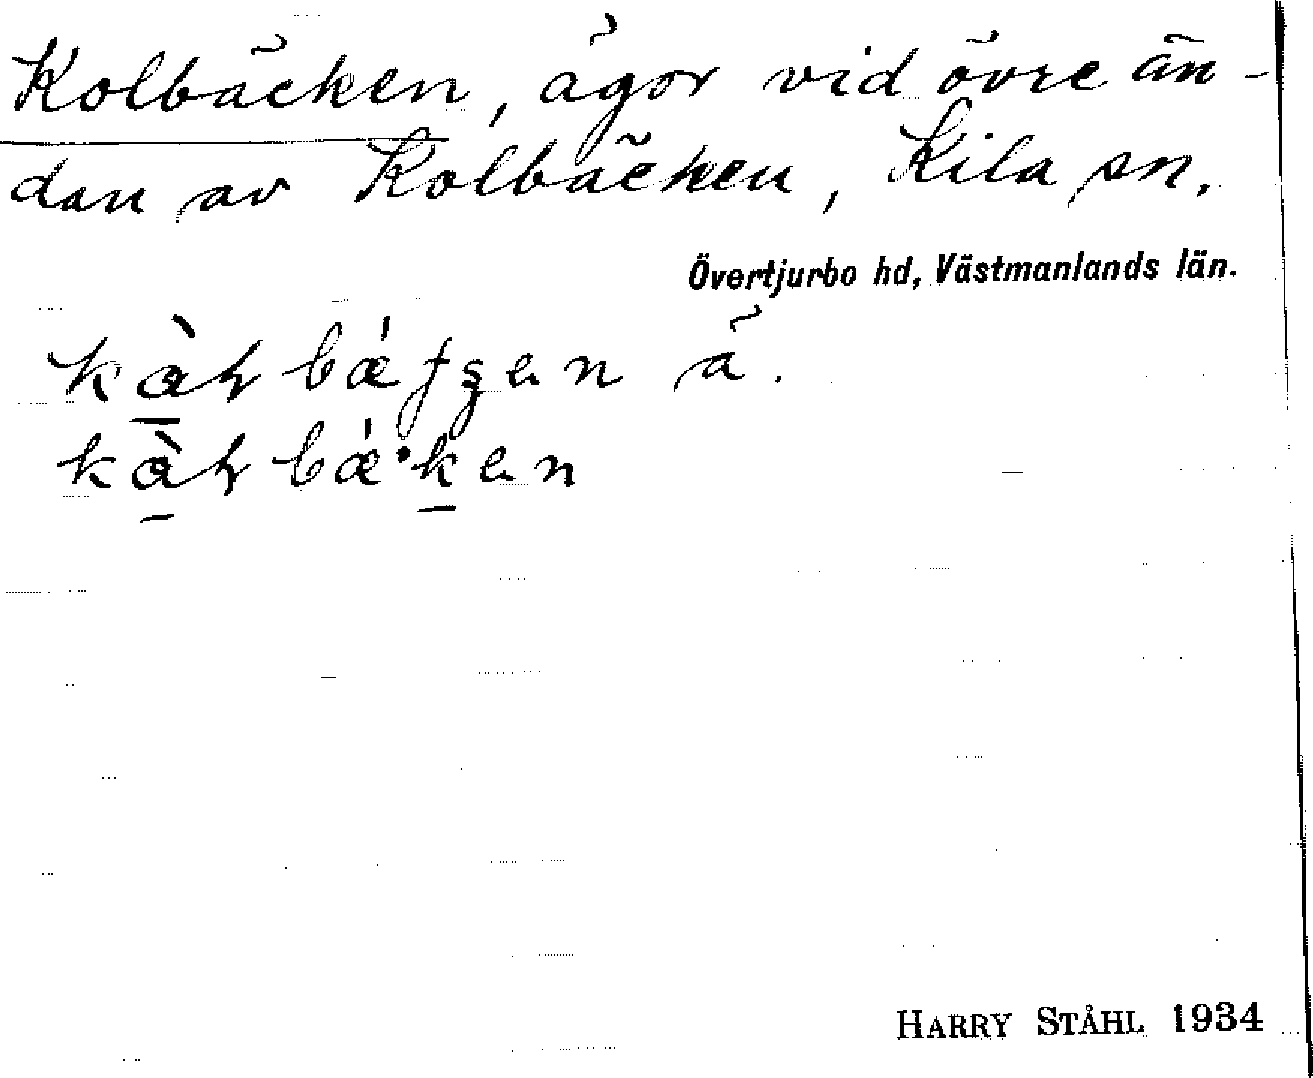 Kolbäcken, ägor vid övre än-
dan av Kolbäcken, Kila sn.
Övertjurbo hd, Västmanlands län.
HARRY STÅHL 1934